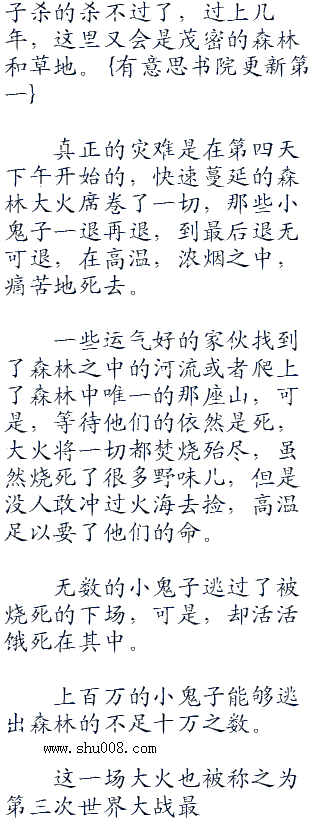 子杀的杀不过了，过上几
年，这里又会是茂密的森林
和草地。{有意思书院更新第
一}
真正的灾难是在第四天
下午开始的，快速蔓延的森
林大火席卷了一切，那些小
鬼子一退再退，到最后退无
可退，在高温，浓烟之中，
痛苦地死去。
一些运气好的家伙找到
了森林之中的河流或者爬上
了森林中唯一的那座山，可
是，等待他们的依然是死，
大火将一切都焚烧殆尽，虽
然烧死了很多野味儿，但是
没人敢冲过火海去捡，高温
足以要了他们的命。
无数的小鬼子逃过了被
烧死的下场，可是，却活活
饿死在其中。
上百万的小鬼子能够逃
出森林的不足十万之数。
www.shu008.com
这一场大火也被称之为
第三次世界大战最